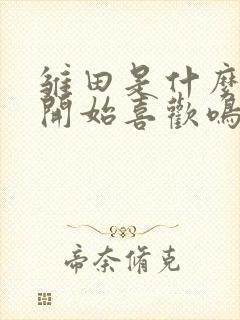 雛田是什麼
開始喜歡鳴
帝奈脩克